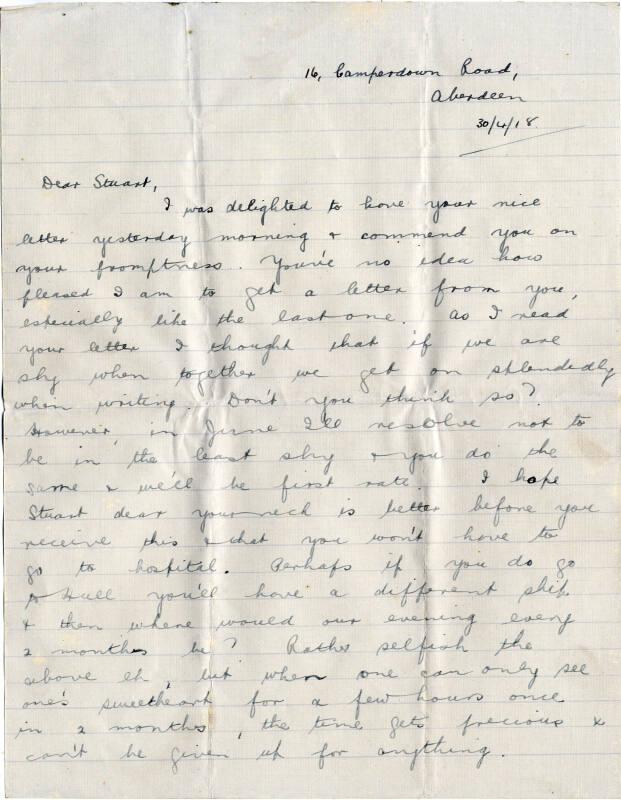 16, Camperdown Road,
Aberdeen
30/4/18.
Dear Stuart,
I was delighted to have your nice
letter yesterday morning & commend you on
your promptness. You've no idea how
pleased I am to get a letter from you,
especially like the last one. As I read
your letter I thought that if we are
shy when together we get on splendedly
when writing. Don't you think so?
However, in June I'll resolve not to
be in the least shy & you do the
same & we'll be first rate. I hope
Stuart dear your neck is better before you
receive this & that you won't have to
go to hospital. Perhaps if you do go
to Hull you'll have a different ship
& then where would our evening every
2 months be? Rather selfish the
above eh, but when one can only see
one's sweetheart for a few hours once
in 2 months, the time gets precious &
can't be given up for anything.